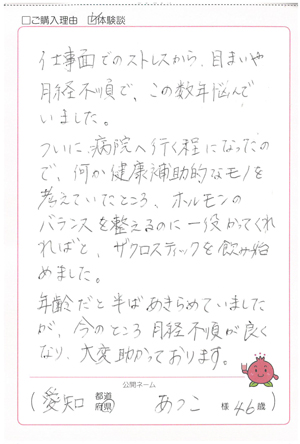 □ご購入理由 ☑体験談
仕事面でのストレスから、目まいや
月経不順で、この数年悩んで
いました。
ついに病院へ行く程になったの
で、何か健康補助的なモノを
考えていたところ、ホルモンの
バランスを整えるのに一役かってくれ
ればと、ザクロスティックを飲み始
めました。
年齢だと半ばあきらめていました
が、今のところ月経不順が良く
なり、大変助かっております。
公開ネーム
(愛知 都道府県 あつこ 様 46歳)